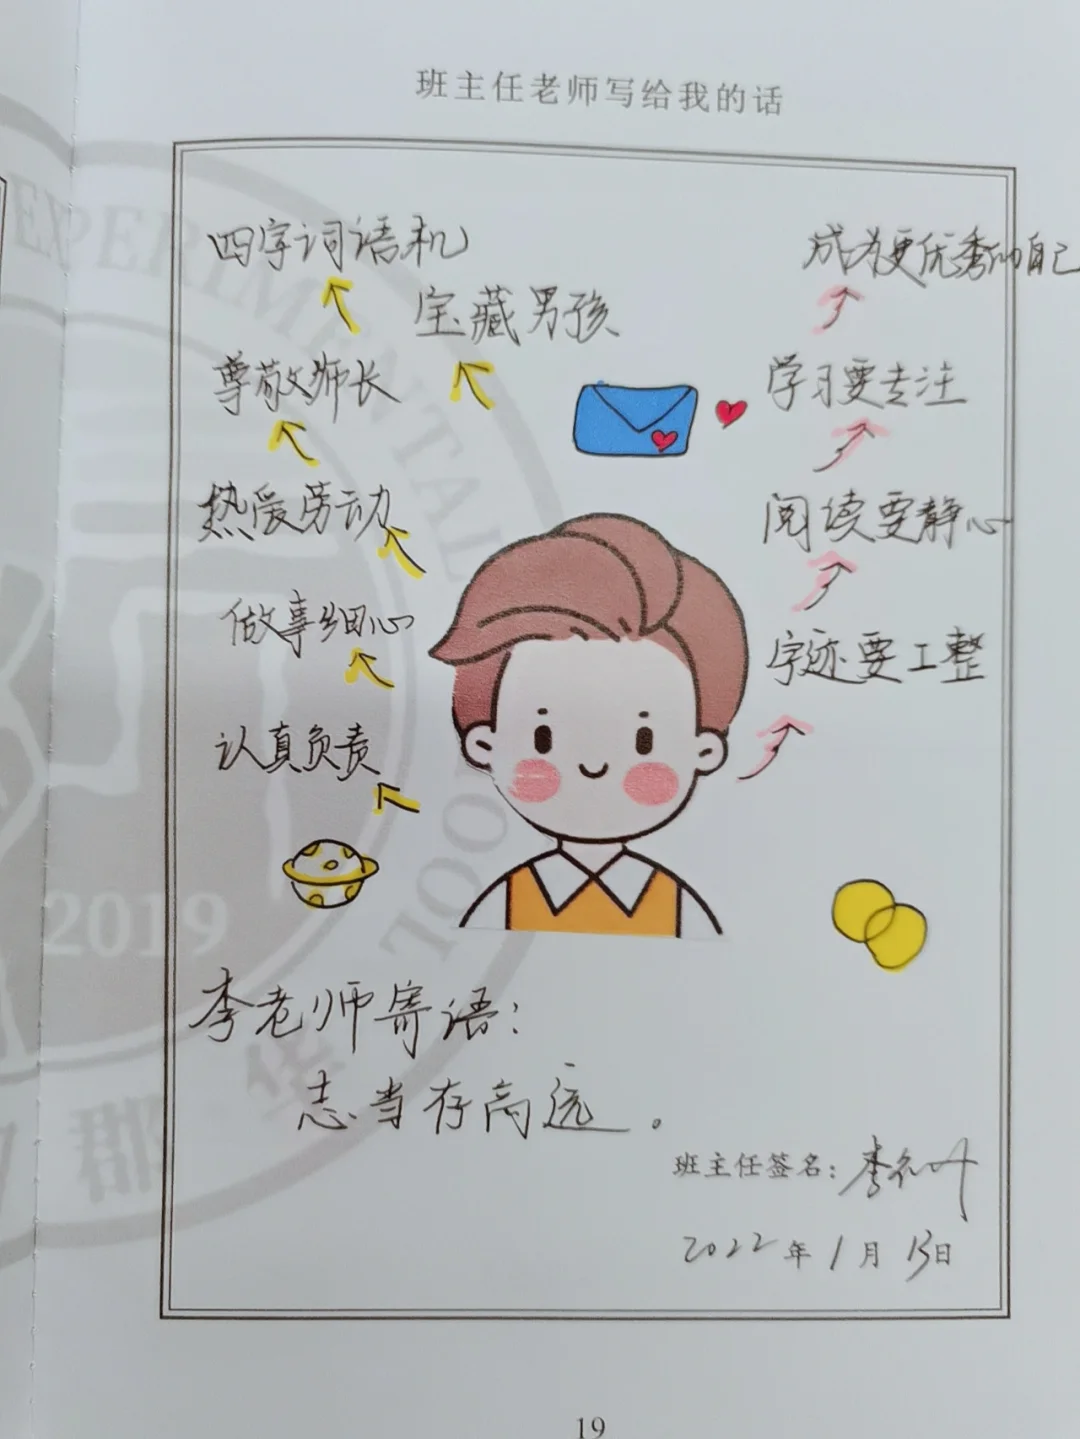 班主任老师写给我的话
四字词语机
成为更优秀的自己
宝藏男孩
尊敬师长
学习要专注
热爱劳动
阅读要静心
做事细心
字迹要工整
认真负责
EXPERIMENTAL
2019
李老师寄语：
志当存高远。
华
郡
班主任签名：李
2022年1月13日
19